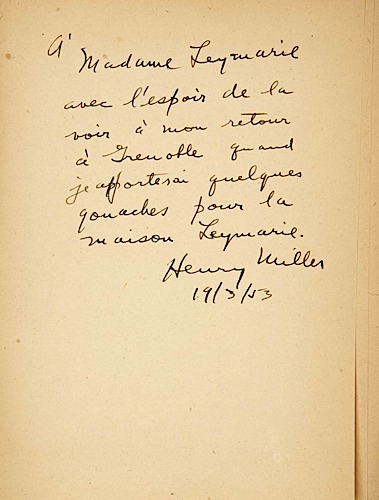 À Madame Leymarie
avec l'espoir de la
voir à mon retour
à Grenoble quand
je apporterai quelques
gouaches pour la
maison Leymarie.
Henry Miller
19/3/53